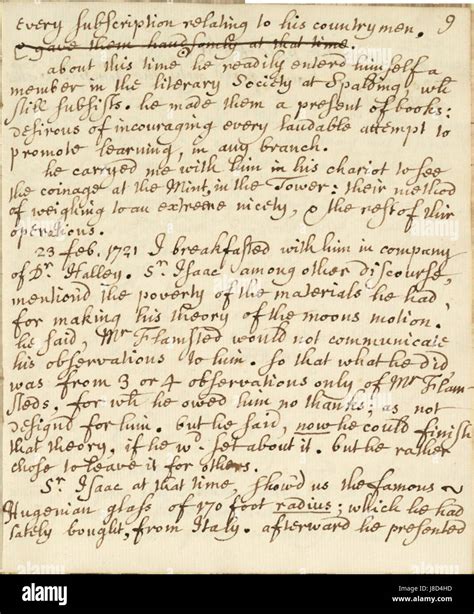 every Subscription relating to his countrymen. 9
& gave them handsomely at that time
about this time he readily enterd himself a
member in the literary Society at Spalding, wh
still subsists. he made them a present of books:
desirous of incouraging every laudable attempt to
promote learning, in any branch.
he carryed me with him in his chariot to see
the coinage at the Mint, in the Tower: their method
of weighing to an extreme nicety, & the rest of their
operations.
23 feb. 1721 I breakfasted with him in company
of Dr. Halley. Sr. Isaac among other discourse,
mentiond the poverty of the materials he had,
for making his theory of the moons motion.
he said, Mr Flamsted would not communicate
his observations to him. so that what he did
was from 3 or 4 observations only of Mr Flam-
steds. for wh he owed him no thanks: as not
designd for him. but he said, now he could finish
that theory, if he wd. set about it. but he rather
chose to leave it for others.
Sr. Isaac at that time, showd us the famous
Hugenian glass of 170 foot radius; which he had
lately bought, from Italy. afterward he presented
alamy stock photo
J8D4HD
www.alamy.com